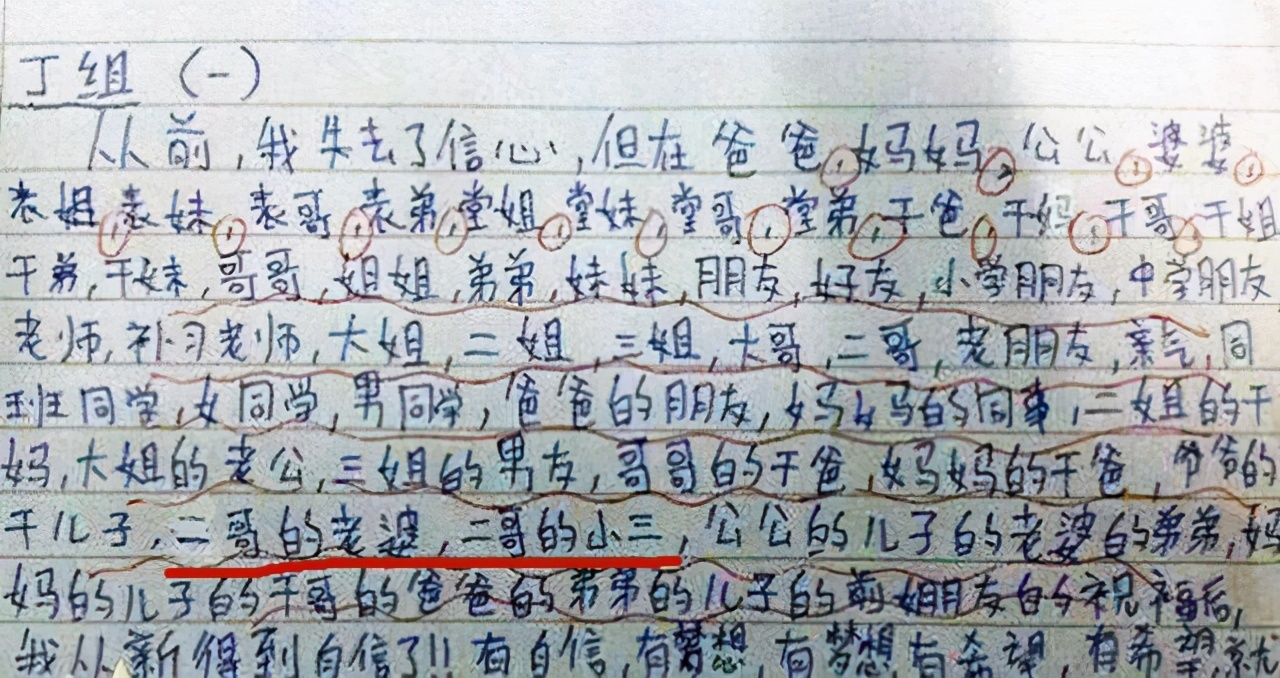 丁组 (一)
从前,我失去了信心,但在爸爸,妈妈,公公,婆婆,
表姐,表妹,表哥,表弟,堂姐,堂妹,堂哥,堂弟,干爸,干妈,干哥,干姐
干弟,干妹,哥哥,姐姐,弟弟,妹妹,朋友,好友,小学朋友,中学朋友
老师,补习老师,大姐,二姐,三姐,大哥,二哥,老朋友,亲气,同
班同学,女同学,男同学,爸爸的朋友,妈妈的同事,二姐的干
妈,大姐的老公,三姐的男友,哥哥的干爸,妈妈的干爸,爷爷的
干儿子,二哥的老婆,二哥的小三,公公的儿子的老婆的弟弟,妈
妈的儿子的干哥的爸爸的弟弟的儿子的前女朋友的祝福后,
我从新得到自信了!!有自信,有梦想,有梦想,有希望,有希望,就